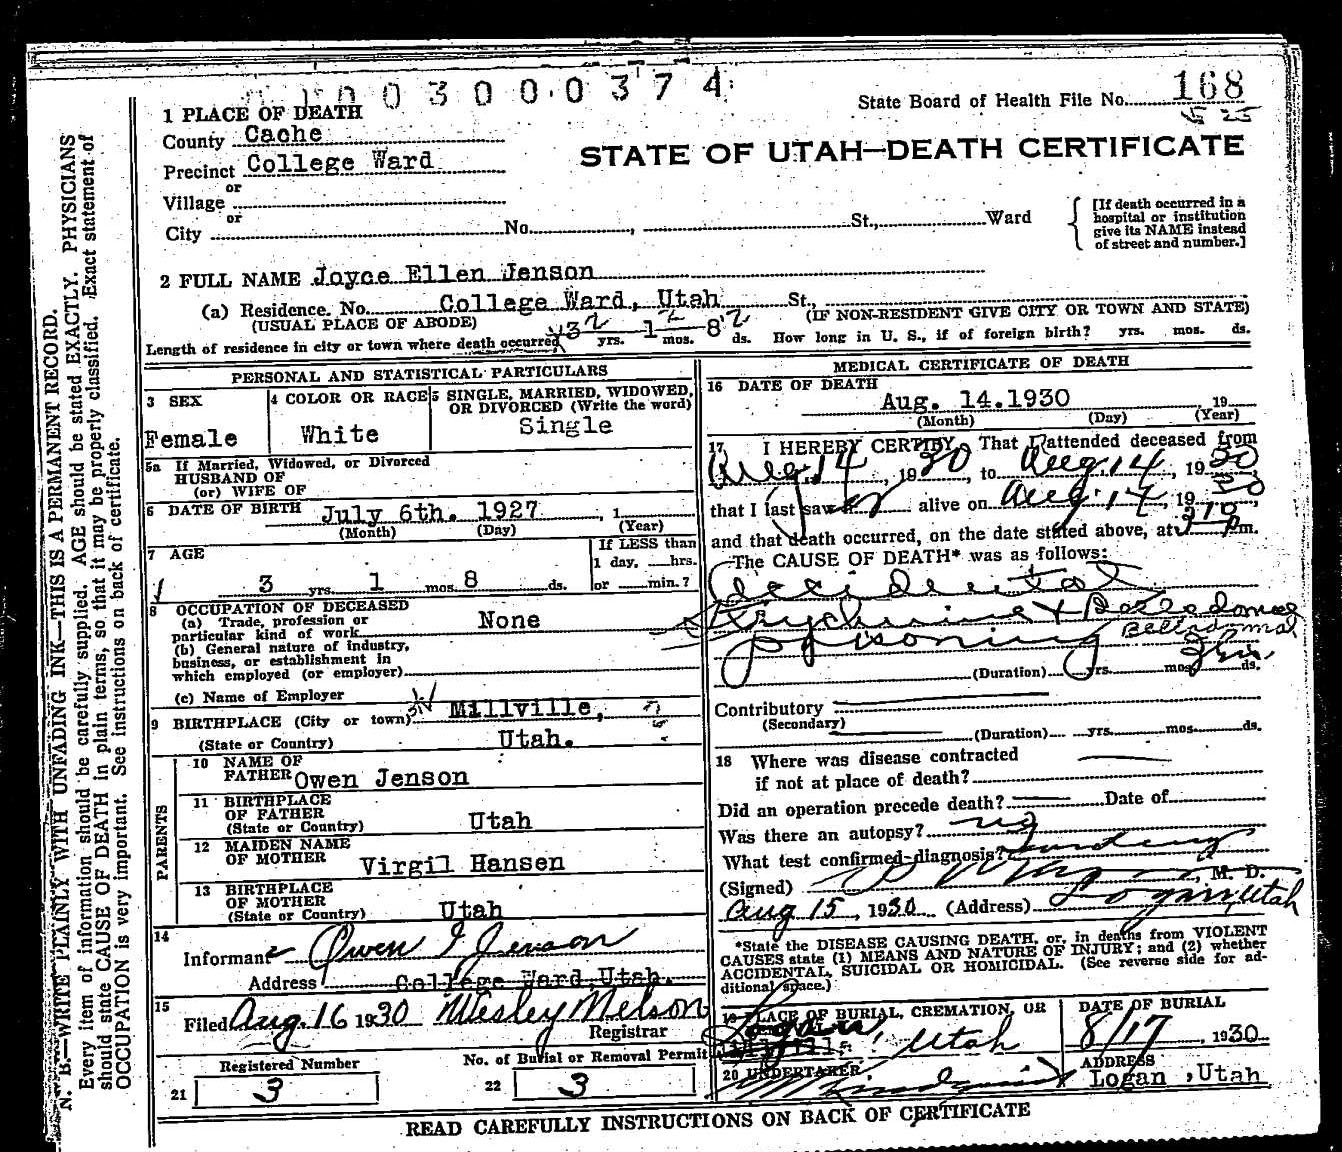 0 0 3 0 0 0 3 7 4
State Board of Health File No. 168
1 PLACE OF DEATH
County Cache
Precinct College Ward
STATE OF UTAH—DEATH CERTIFICATE
or
Village
or
City No. , St., Ward
[If death occurred in a
hospital or institution
give its NAME instead
of street and number.]
2 FULL NAME Joyce Ellen Jenson
(a) Residence. No. College Ward, Utah St.,
(USUAL PLACE OF ABODE) (IF NON-RESIDENT GIVE CITY OR TOWN AND STATE)
Length of residence in city or town where death occurred 3 yrs. 1 mos. 8 ds. How long in U. S., if of foreign birth? yrs. mos. ds.
PERSONAL AND STATISTICAL PARTICULARS
3 SEX
Female
4 COLOR OR RACE
White
5 SINGLE, MARRIED, WIDOWED,
OR DIVORCED (Write the word)
Single
5a If Married, Widowed, or Divorced
HUSBAND OF
(or) WIFE OF
6 DATE OF BIRTH July 6th. 1927 , 1
(Month) (Day) (Year)
7 AGE
3 yrs. 1 mos. 8 ds.
If LESS than
1 day, hrs.
or min.?
8 OCCUPATION OF DECEASED
(a) Trade, profession or
particular kind of work None
(b) General nature of industry,
business, or establishment in
which employed (or employer)
(c) Name of Employer
9 BIRTHPLACE (City or town) Millville,
(State or Country) Utah.
PARENTS
10 NAME OF
FATHER Owen Jenson
11 BIRTHPLACE
OF FATHER
(State or Country) Utah
12 MAIDEN NAME
OF MOTHER Virgil Hansen
13 BIRTHPLACE
OF MOTHER
(State or Country) Utah
14
Informant Owen J Jenson
Address College Ward, Utah.
15
Filed Aug. 16 1930 Wesley Nelson
Registrar
Registered Number
21 3
No. of Burial or Removal Permit
22 3
MEDICAL CERTIFICATE OF DEATH
16 DATE OF DEATH
Aug. 14.1930 19
(Month) (Day) (Year)
17 I HEREBY CERTIFY, That I attended deceased from
Aug. 14, 1930, to Aug. 14, 1930,
that I last saw er alive on Aug. 14, 1930,
and that death occurred, on the date stated above, at m.
The CAUSE OF DEATH* was as follows:
Accidental
Strychnine + Belladonna
Belladonna
poisoning
(Duration) yrs. mos. ds.
Contributory
(Secondary)
(Duration) yrs. mos. ds.
18 Where was disease contracted
if not at place of death?
Did an operation precede death? Date of
Was there an autopsy? no
What test confirmed diagnosis?
(Signed) , M. D.
Aug 15, 1930 (Address) Logan, Utah
*State the DISEASE CAUSING DEATH, or, in deaths from VIOLENT
CAUSES state (1) MEANS AND NATURE OF INJURY; and (2) whether
ACCIDENTAL, SUICIDAL OR HOMICIDAL. (See reverse side for ad-
ditional space.)
19 PLACE OF BURIAL, CREMATION, OR
Logan, Utah
DATE OF BURIAL
8/17, 1930
20 UNDERTAKER
ADDRESS
Logan ,Utah
READ CAREFULLY INSTRUCTIONS ON BACK OF CERTIFICATE
N. B.—WRITE PLAINLY WITH UNFADING INK—THIS IS A PERMANENT RECORD.
Every item of information should be carefully supplied. AGE should be stated EXACTLY. PHYSICIANS
should state CAUSE OF DEATH in plain terms, so that it may be properly classified. Exact statement of
OCCUPATION is very important. See instructions on back of certificate.